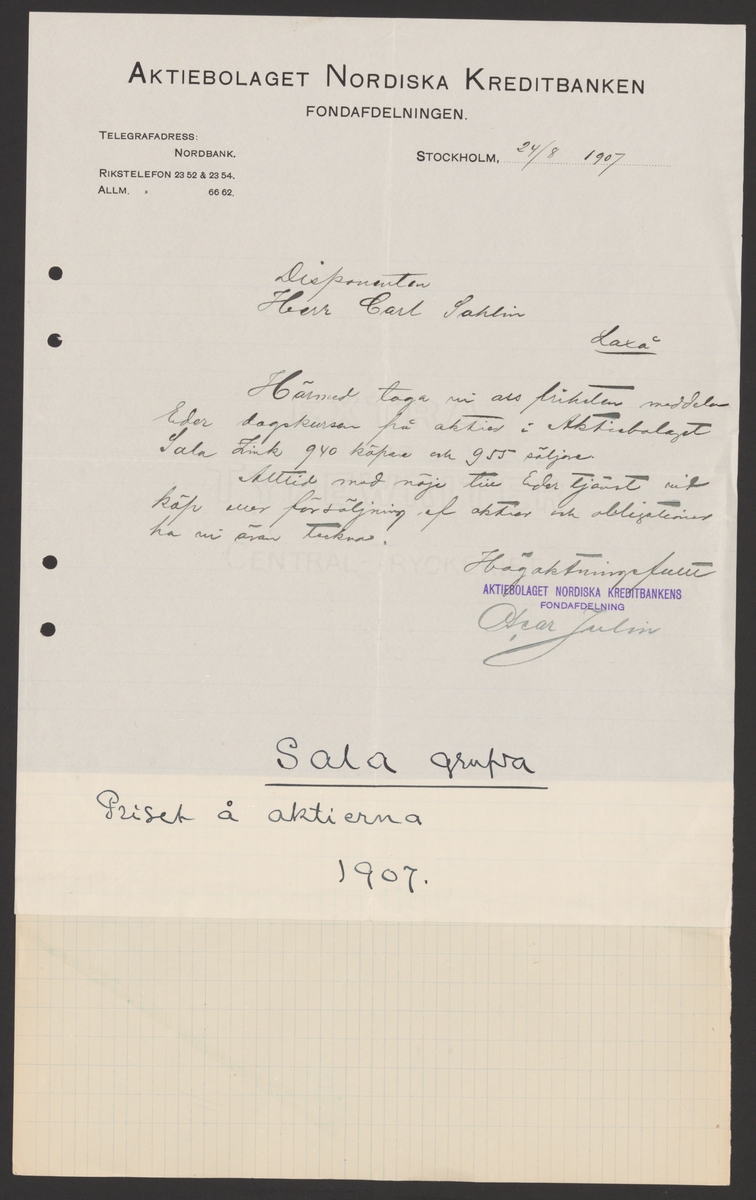 AKTIEBOLAGET NORDISKA KREDITBANKEN
FONDAFDELNINGEN.
TELEGRAFADRESS:
NORDBANK.
RIKSTELEFON 23 52 & 23 54.
ALLM. " 66 62.
STOCKHOLM, 24/8 1907
Disponenten
Herr Carl Sahlin
Laxå
Härmed taga vi oss friheten meddela
Eder dagskursen på aktier i Aktiebolaget
Sala Zink 940 köpare och 955 säljare.
Alltid med nöje till Eder tjänst vid
köp eller försäljning af aktier och obligationer
ha vi äran teckna.
Högaktningsfullt
AKTIEBOLAGET NORDISKA KREDITBANKENS
FONDAFDELNING
Oscar Julin
Sala grufva
Priset å aktierna
1907.